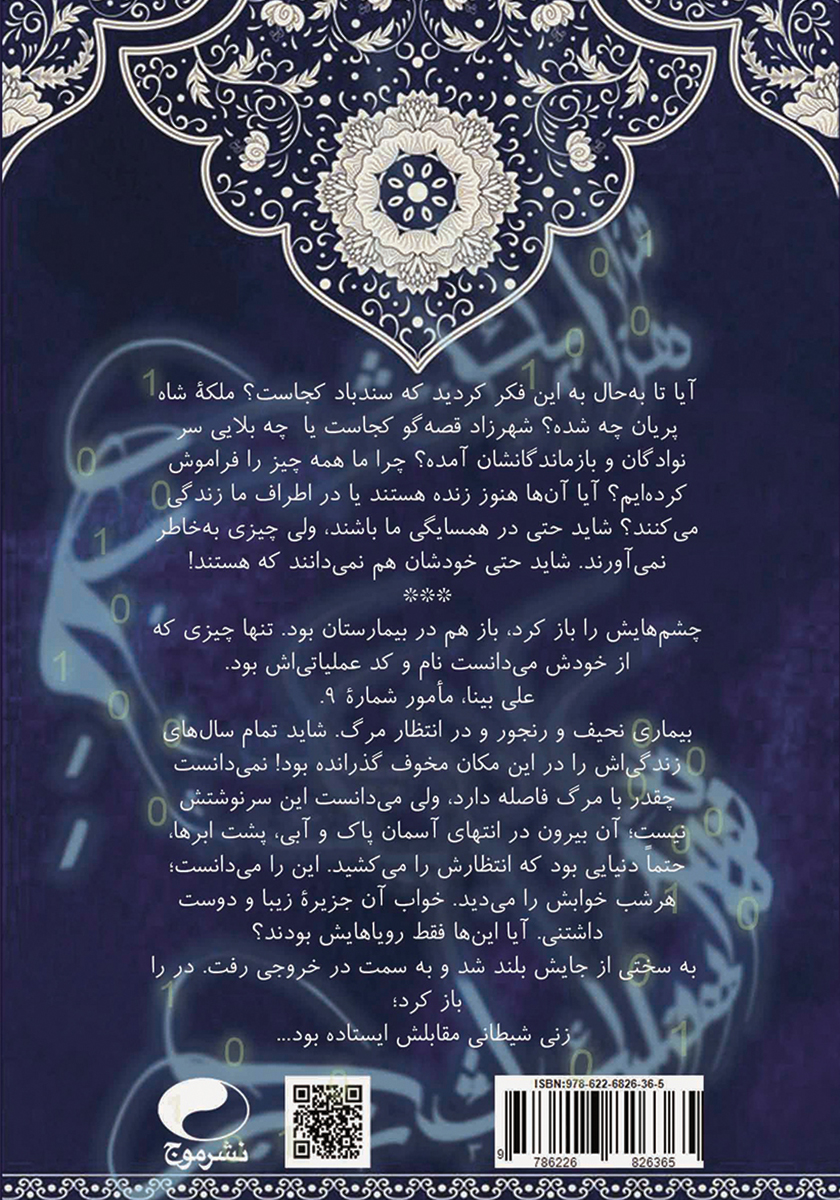 آیا تا به‌حال به این فکر کردید که سندباد کجاست؟ ملکهٔ شاه
پریان چه شده؟ شهرزاد قصه‌گو کجاست یا چه بلایی سر
نوادگان و بازماندگانشان آمده؟ چرا ما همه چیز را فراموش
کرده‌ایم؟ آیا آن‌ها هنوز زنده هستند یا در اطراف ما زندگی
می‌کنند؟ شاید حتی در همسایگی ما باشند، ولی چیزی به‌خاطر
نمی‌آورند. شاید حتی خودشان هم نمی‌دانند که هستند!
***
چشم‌هایش را باز کرد، باز هم در بیمارستان بود. تنها چیزی که
از خودش می‌دانست نام و کد عملیاتی‌اش بود.
علی بینا، مأمور شمارهٔ ۹.
بیماری نحیف و رنجور و در انتظار مرگ. شاید تمام سال‌های
زندگی‌اش را در این مکان مخوف گذرانده بود! نمی‌دانست
چقدر با مرگ فاصله دارد، ولی می‌دانست این سرنوشتش
نیست؛ آن بیرون در انتهای آسمان پاک و آبی، پشت ابرها،
حتماً دنیایی بود که انتظارش را می‌کشید. این را می‌دانست؛
هرشب خوابش را می‌دید. خواب آن جزیرهٔ زیبا و دوست
داشتنی. آیا این‌ها فقط رویاهایش بودند؟
به سختی از جایش بلند شد و به سمت در خروجی رفت. در را
باز کرد؛
زنی شیطانی مقابلش ایستاده بود...
نشر موج
ISBN:978-622-6826-36-5
9 786226 826365